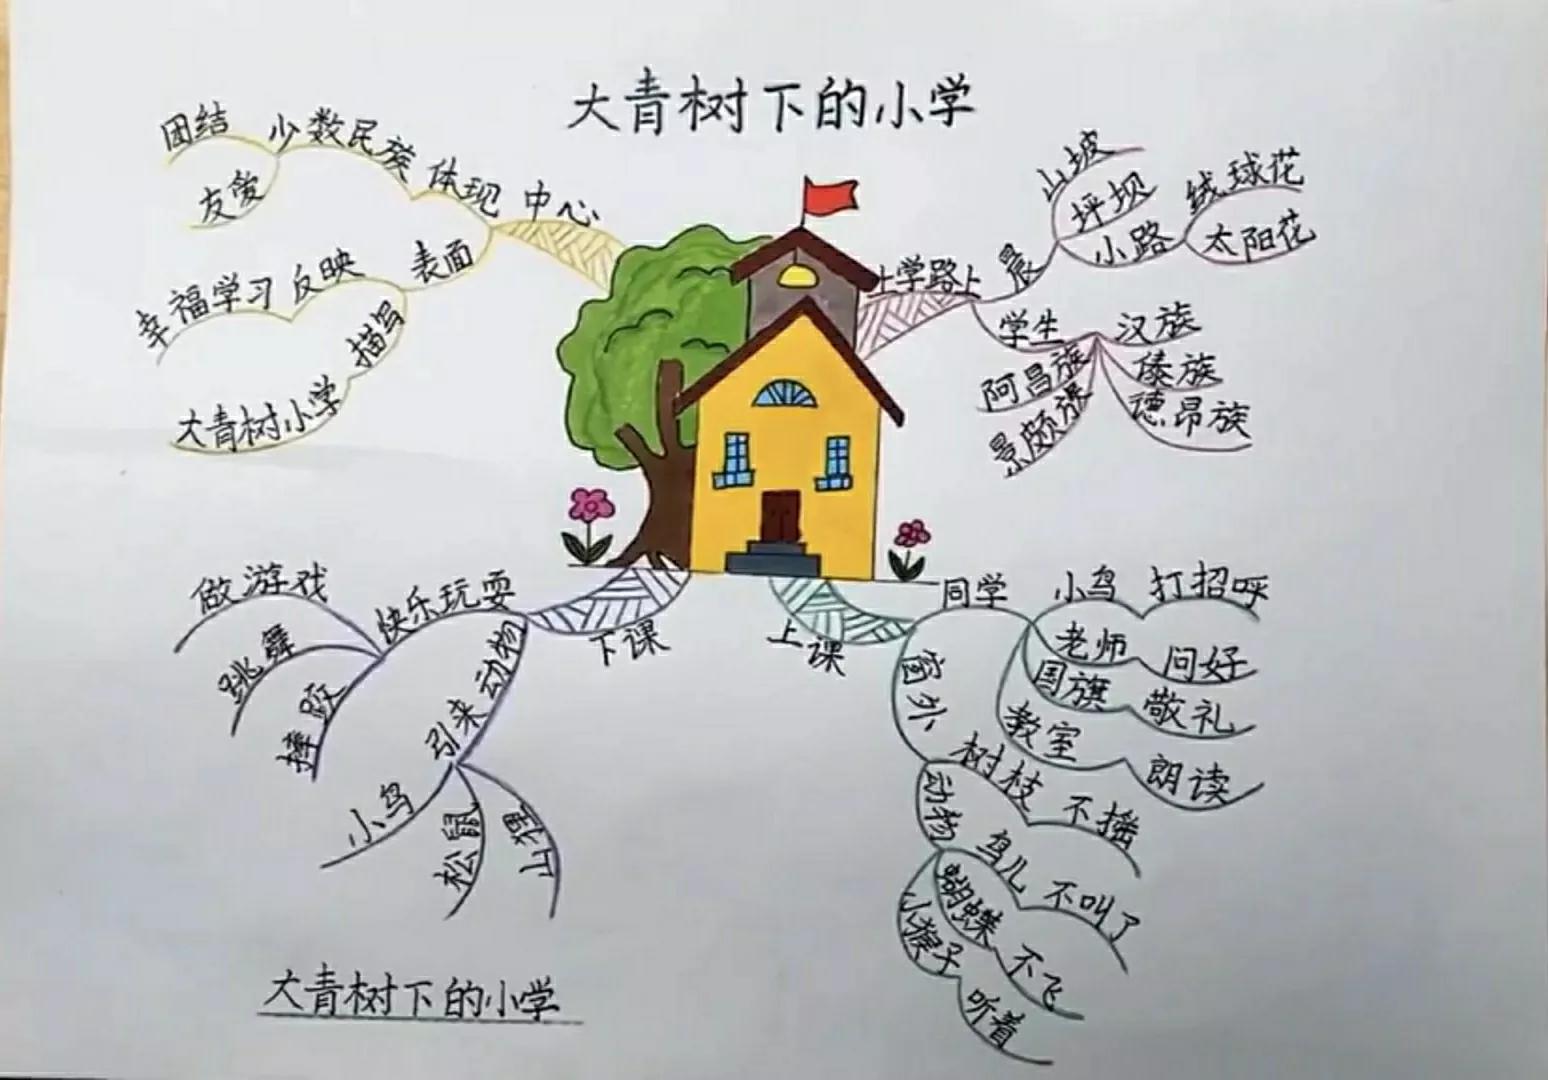 大青树下的小学
上学路上
晨
山坡
坪坝
小路
绒球花
太阳花
学生
汉族
傣族
德昂族
阿昌族
景颇族
上课
同学
小鸟 打招呼
老师 问好
国旗 敬礼
教室 朗读
窗外
树枝 不摇
动物
鸟儿 不叫了
蝴蝶 不飞
小猴子 听着
下课
快乐玩耍
做游戏
跳舞
摔跤
引来动物
小鸟
松鼠
山狸
中心
体现
少数民族
团结
友爱
表面
反映
幸福学习
描写
大青树小学
大青树下的小学